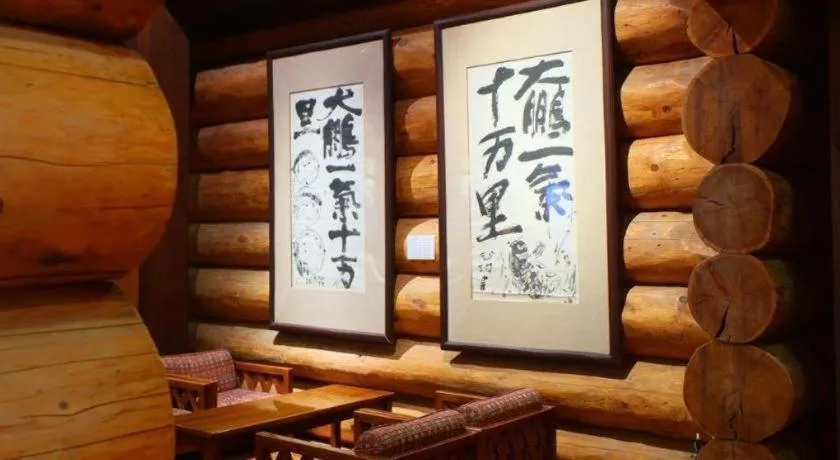 大鵬一氣
十万里
大鵬一氣十万
里